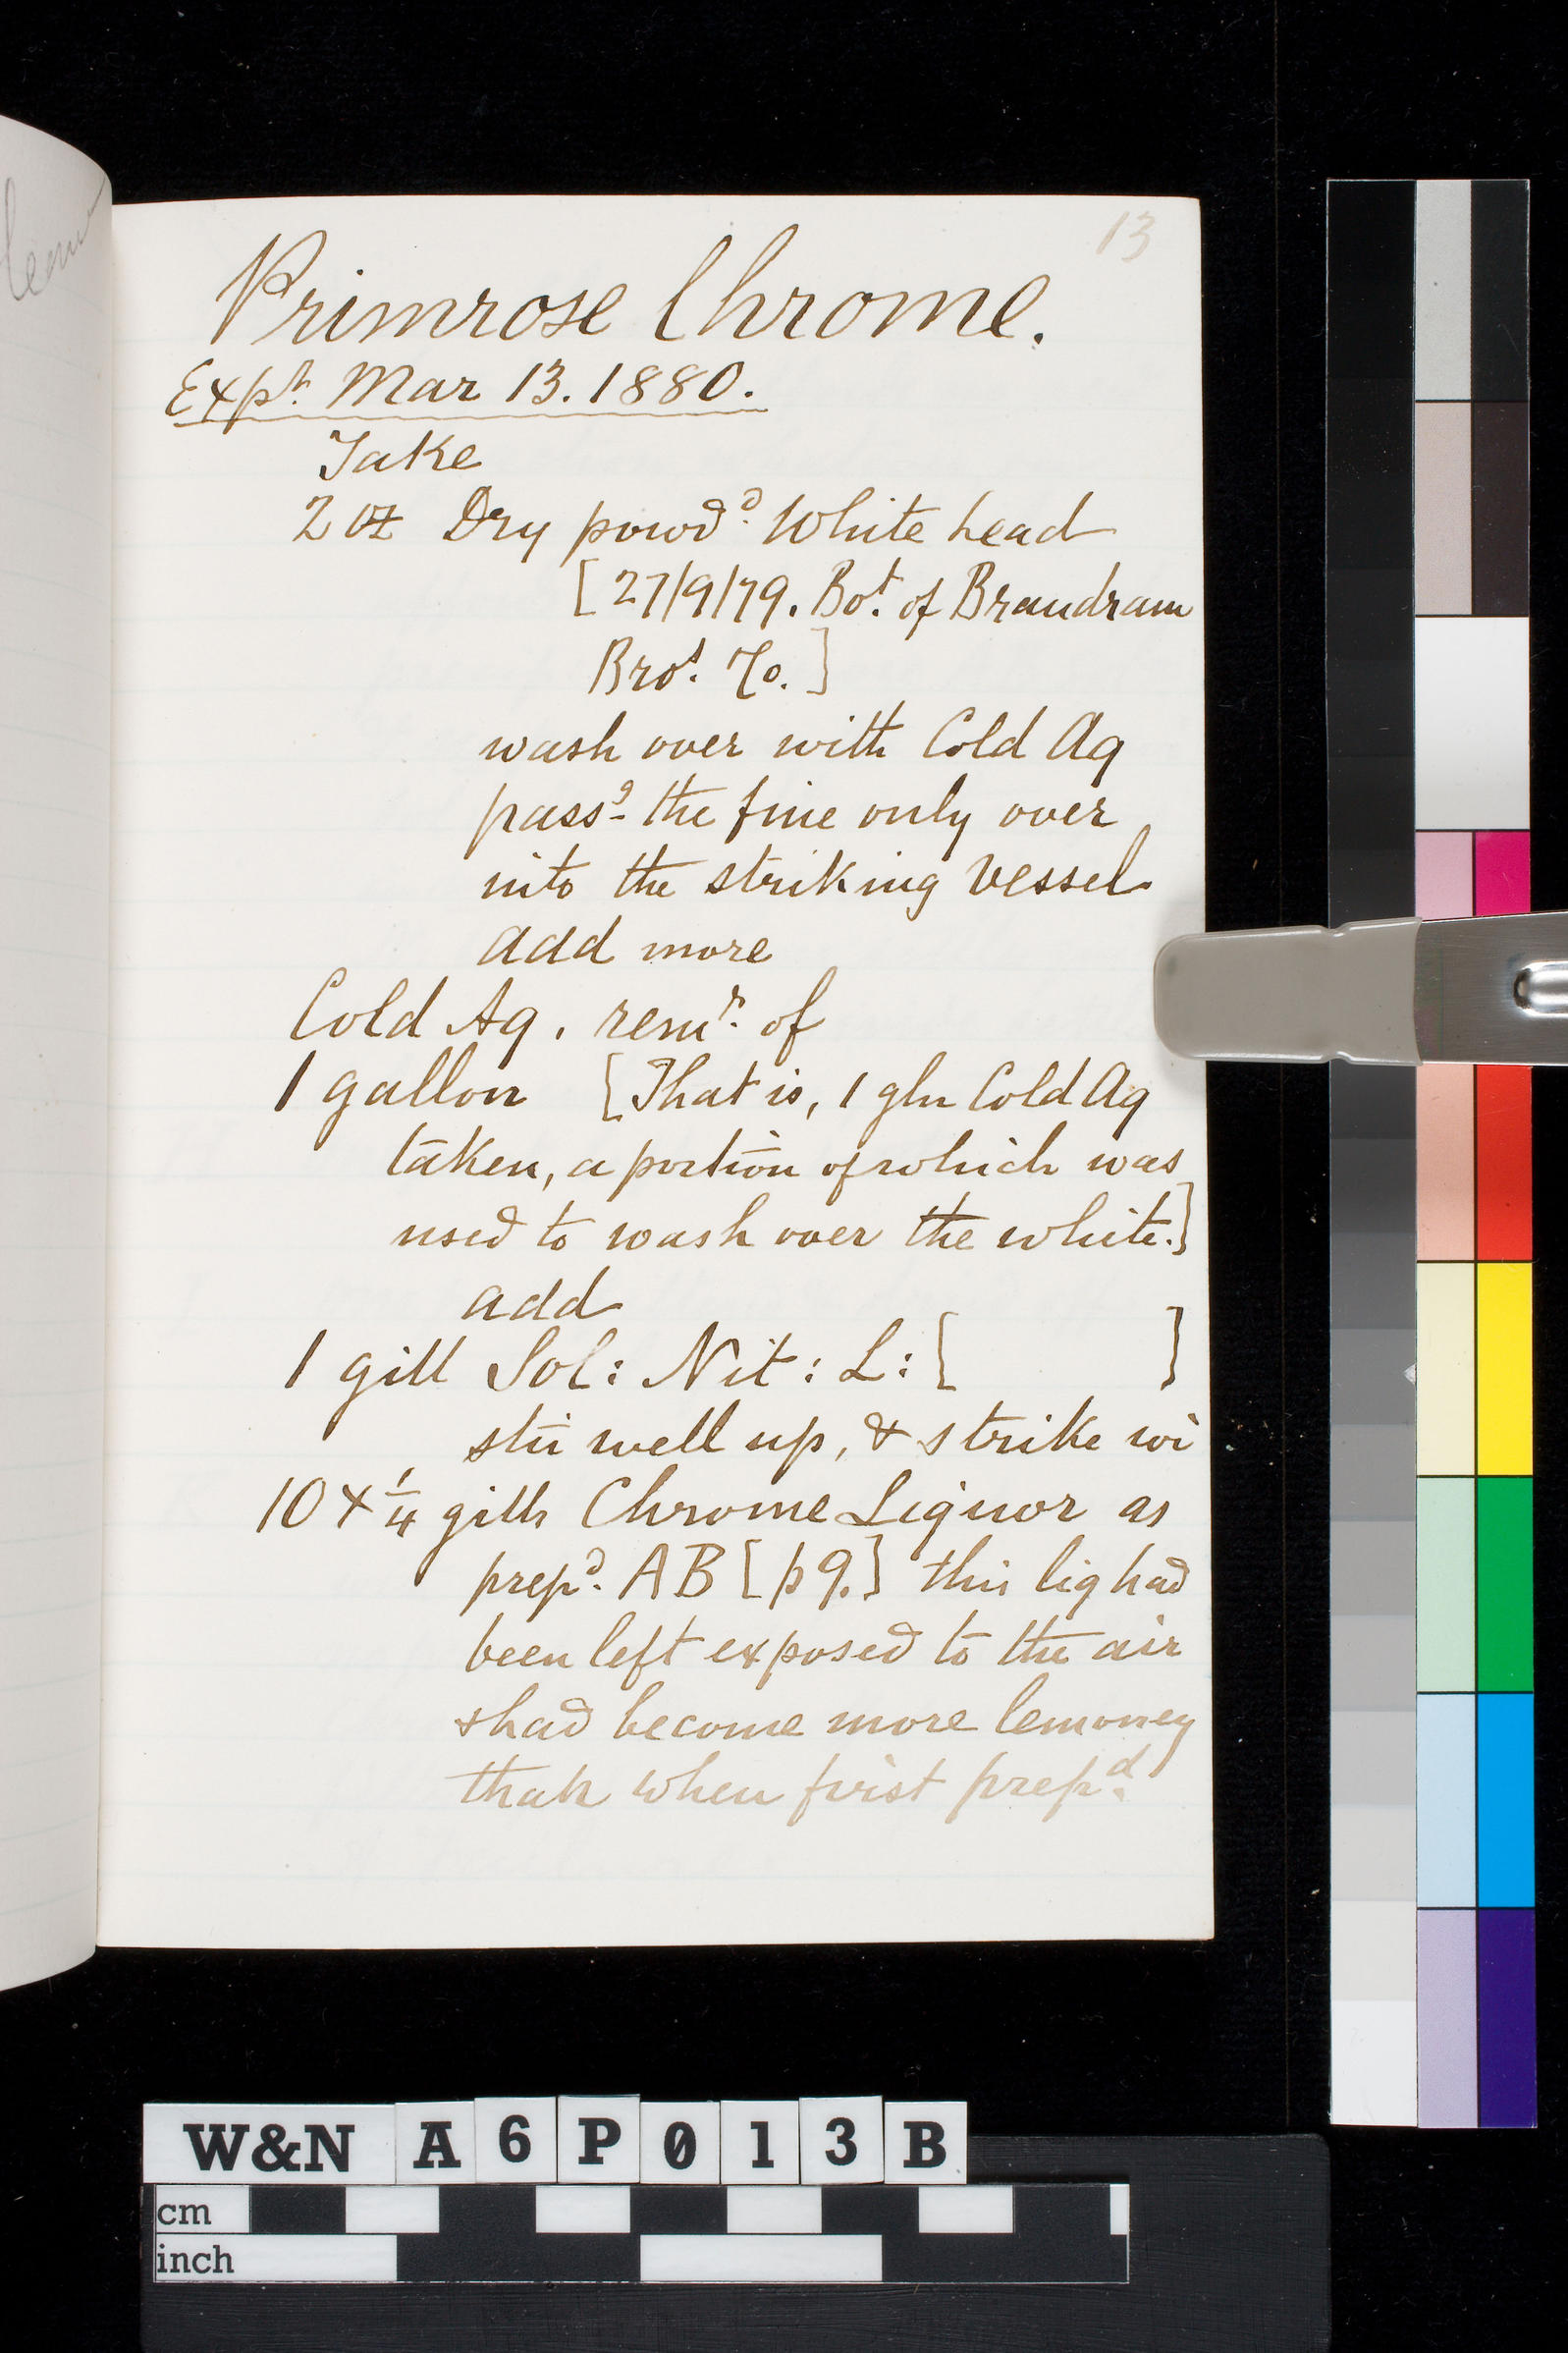 13
Primrose Chrome.
Expt. Mar 13. 1880.
Take
2 oz Dry powdd. White Lead
[27/9/79. Bot. of Brandram
Bros. Co.]
wash over with Cold Aq
passg. the fine only over
into the striking vessel
add more
Cold Aq. remr. of
1 gallon [That is, 1 gln Cold Aq
taken, a portion of which was
used to wash over the white.]
add
1 gill Sol: Nit: L: [ ]
stir well up, & strike wi
10 x 1/4 gills Chrome Liquor as
prepd. AB [p 9.] this liq had
been left exposed to the air
& had become more lemoney
than when first prepd.
W&N A6P013B
cm
inch